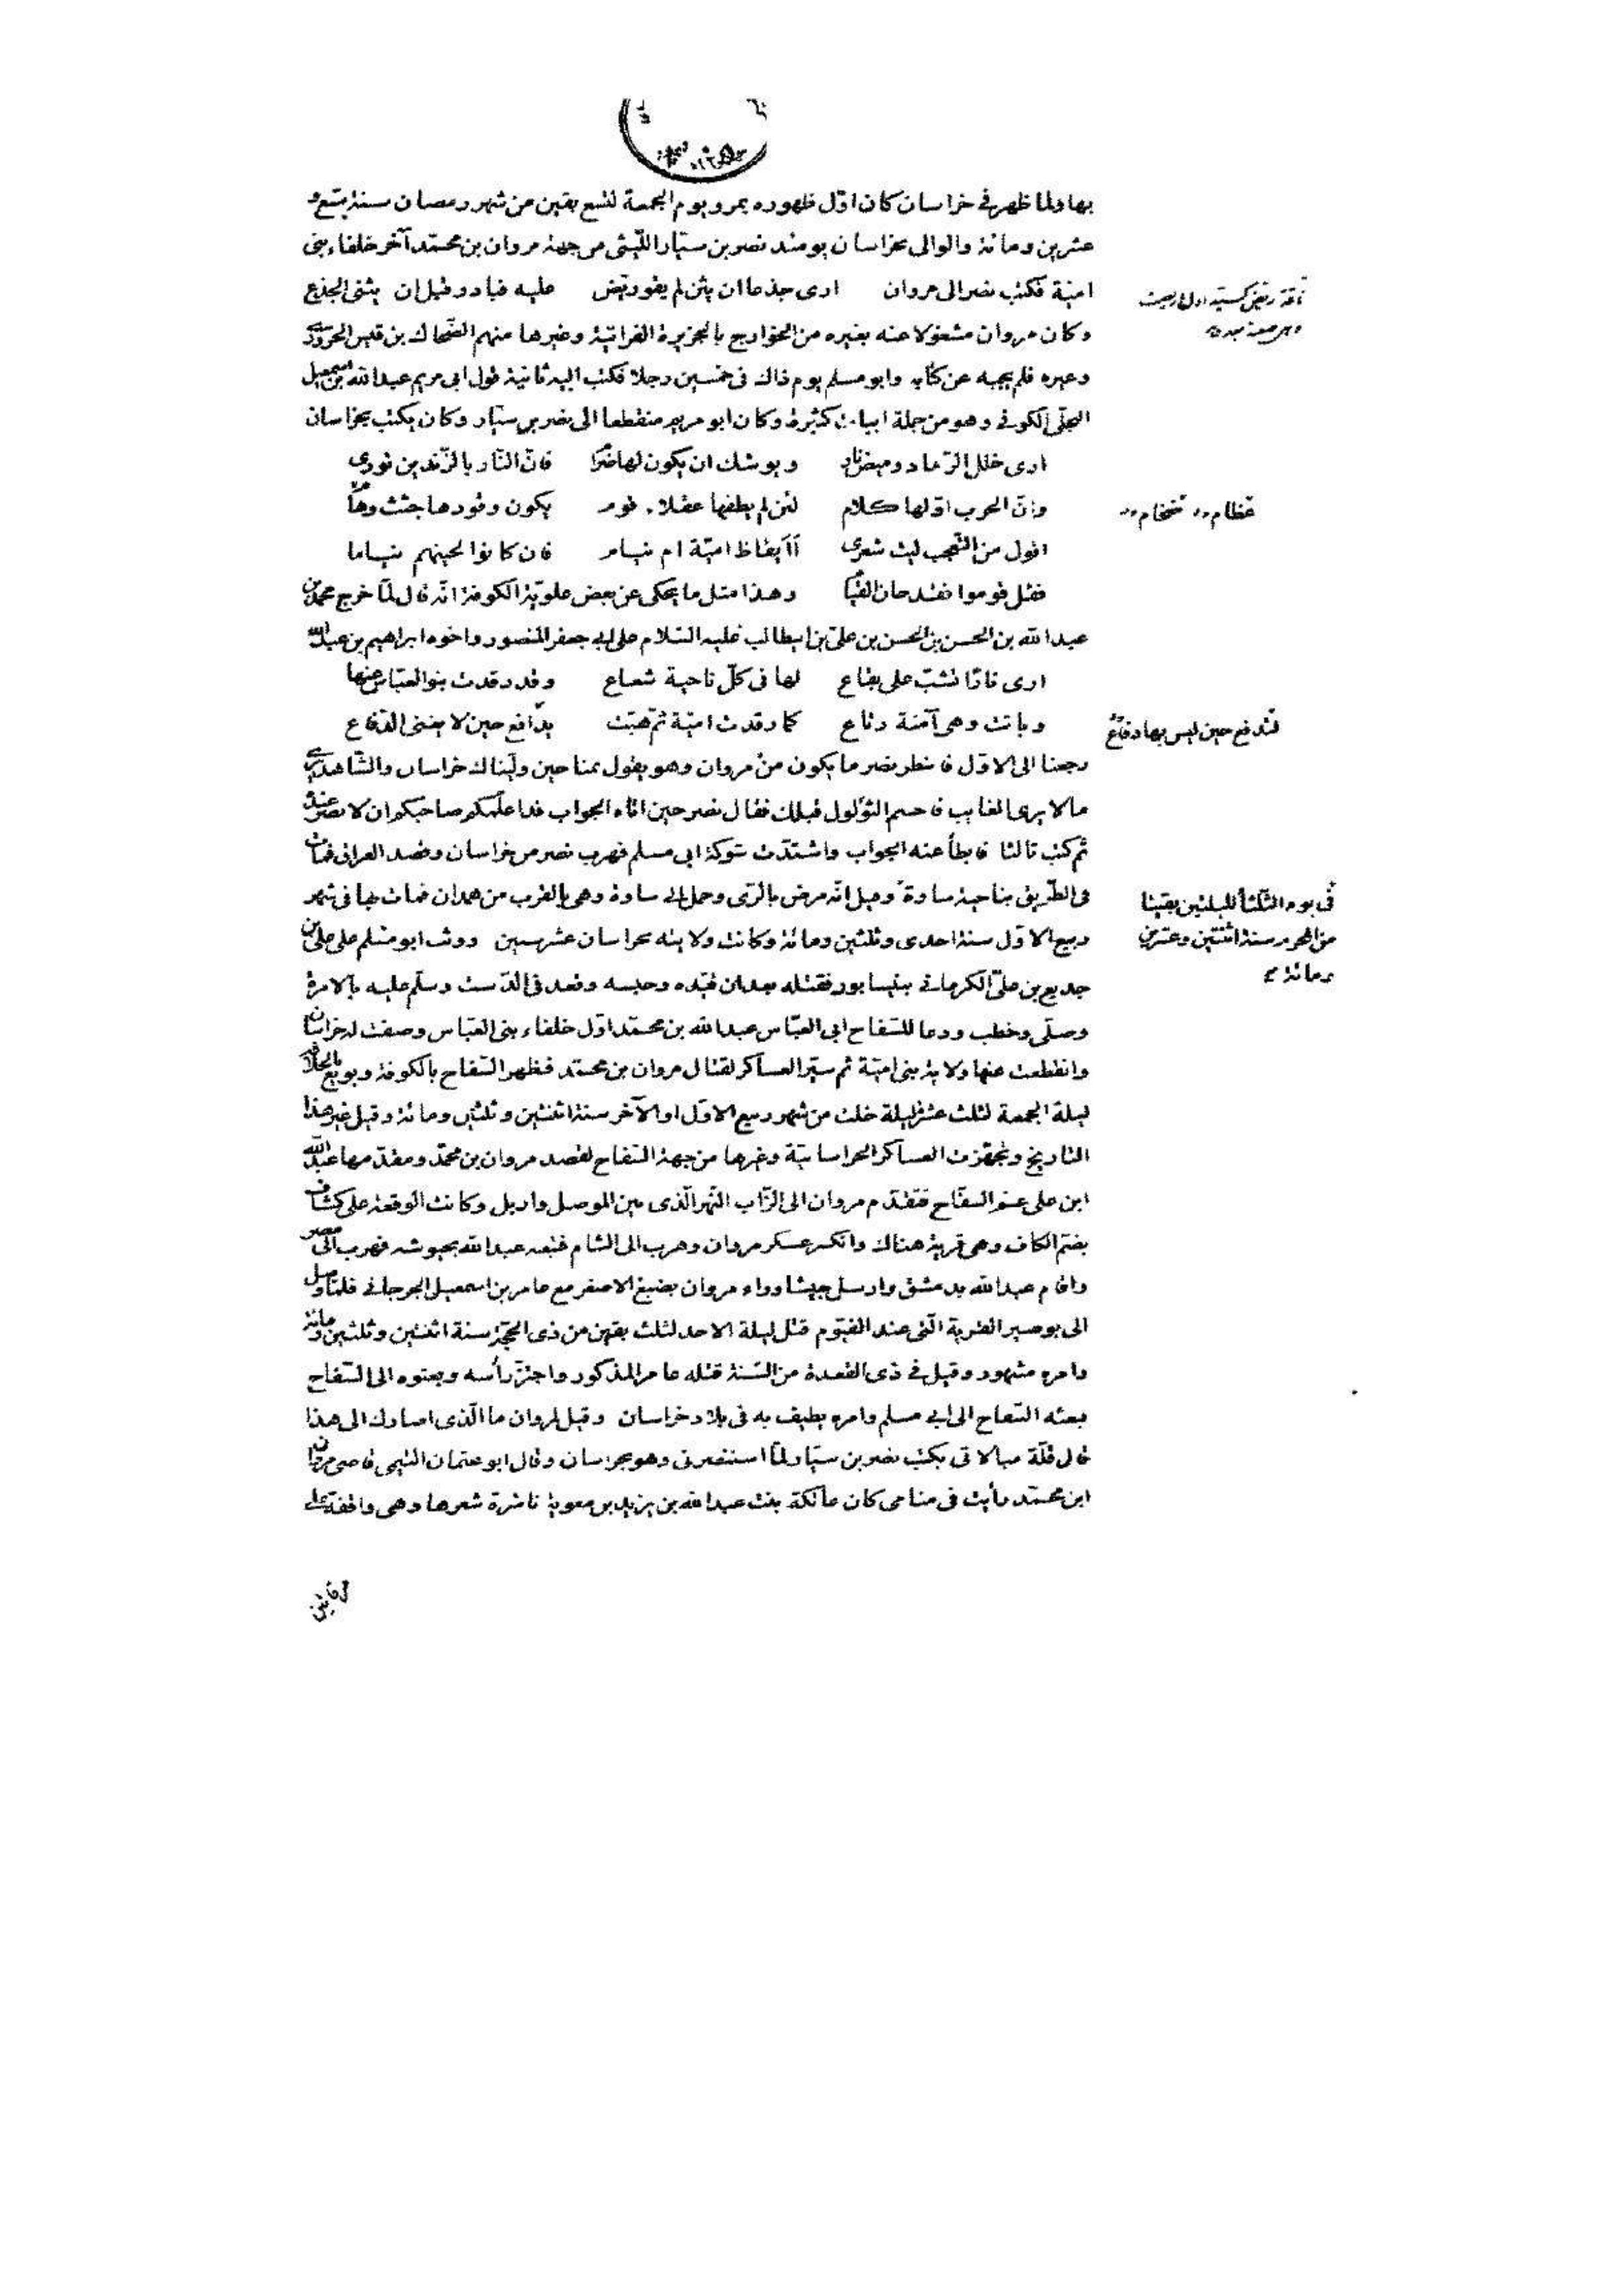 بها ولما ظهر في خراسان كان اوّل ظهوره بمرو يوم الجمعة لتسع بقين من شهر رمضان سنة تسع و
عشرين ومائة والوالى بخراسان يومئذ نصر بن سيّار اللّيثى من جهة مروان بن محمّد آخر خلفاء بنى
اميّة فكتب نصر الى مروان ارى جذعا ان يثن لم يقو ريّض عليه فبادر قبل ان يثنى الجذع
ناقة ريّض
وكان مروان مشغولا عنه بغيره من الخوارج بالجزيرة الفراتيّة وغيرها منهم الضّحاك بن قيس الحرورى
وغيره فلم يجبه عن كتابه وابو مسلم يوم ذاك فى خمسين رجلا فكتب اليه ثانية قول ابى مريم عبد الله بن اسمعيل
البجلّى الكوفى وهو من جملة ابيات كثيرة وكان ابو مريم منقطعا الى نصر بن سيّار وكان يكتب بخراسان
ارى خلل الرّماد وميض نار ويوشك ان يكون لها ضرام فانّ النّار بالزّندين تورى
وانّ الحرب اوّلها كلام لئن لم يطفها عقلاء قوم يكون وقودها جثث وهام
عظام ضخام
اقول من التّعجب ليت شعرى أأيقاظ اميّة ام نيام فان كانوا لحينهم نياما
فقل قوموا فقد حان القيام وهذا مثل ما يحكى عن بعض علويّة الكوفة انّه قال لمّا خرج محمّد بن
عبد الله بن الحسن بن الحسن بن علىّ بن ابيطالب عليه السّلام على ابى جعفر المنصور واخوه ابراهيم بن عبد الله
ارى نارًا تشبّ على يفاع لها فى كلّ ناحية شعاع وقد رقدت بنو العبّاس عنها
وباتت وهى آمنة رتاع كما رقدت اميّة ثمّ هبّت يدافع حين لا يغنى الدّفاع
لتدفع حين ليس بها دفاع
رجعنا الى الاوّل فانتظر نصر ما يكون من مروان وهو يقول نمنا حين ولّيناك خراسان والشّاهد يرى
مالا يرى الغايب فاحسم الثؤلول قبلك فقال نصر حين اتاه الجواب قد اعلمكم صاحبكم ان لا نصر عنده
ثم كتب ثالثا فابطأ عنه الجواب واشتدّت شوكة ابى مسلم فهرب نصر من خراسان وقصد العراق فمات
فى الطّريق بناحية ساوة وقيل انّه مرض بالرّى وحمل الى ساوة وهى بالقرب من همدان فمات بها فى شهر
ربيع الاوّل سنة احدى وثلثين ومائة وكانت ولايته بخراسان عشر سنين ووثب ابو مسلم على علىّ بن
فى يوم الثّلثا لليلتين بقيتا
من المحرم سنة اثنتين وعشرين
ومائة
جديع بن علىّ الكرمانى بنيسابور فقتله بعد ان قيّده وحبسه وقعد فى الدّست وسلّم عليه بالامرة
وصلّى وخطب ودعا للسّفاح ابى العبّاس عبد الله بن محمّد اوّل خلفاء بنى العبّاس وصفت له خراسان
وانقطعت عنها ولاية بنى اميّة ثم سيّر العساكر لقتال مروان بن محمّد فظهر السّفاح بالكوفة وبويع بالخلافة
ليلة الجمعة لثلث عشر ليلة خلت من شهر ربيع الاوّل او الآخر سنة اثنتين وثلثين ومائة وقيل غير هذا
التاريخ وتجهّزت العساكر الخراسانيّة وغيرها من جهة السّفاح لقصد مروان بن محمّد ومقدّمها عبد الله
ابن على عم السفّاح فتقدّم مروان الى الزّاب النّهر الّذى بين الموصل واربل وكانت الوقعة على كشاف
بضمّ الكاف وهى قرية هناك وانكسر عسكر مروان وهرب الى الشام فتبعه عبد الله بجيوشه فهرب الى مصر
واقام عبد الله بدمشق وارسل جيشا وراء مروان بضبغ الاصفر مع عامر بن اسمعيل الجرجانى فلمّا وصل
الى بوصير القرية الّتى عند الفيّوم قتل ليلة الاحد لثلث بقين من ذى الحجّة سنة اثنتين وثلثين ومائة
وامره مشهور وقيل فى ذى القعدة من السّنة قتله عامر المذكور واجتزّ رأسه وبعثوه الى السّفاح
بعثه السّفاح الى ابى مسلم وامره يطيف به فى بلاد خراسان وقيل لمروان ما الّذى اصارك الى هذا
قال قلّة مبالاتى بكتب نصر بن سيّار لمّا استنصرنى وهو بخراسان وقال ابو عثمان التيمى قاضى مروان
ابن محمّد رأيت فى منامى كان عاتكة بنت عبد الله بن يزيد بن معوية ناشرة شعرها وهى واقفة على